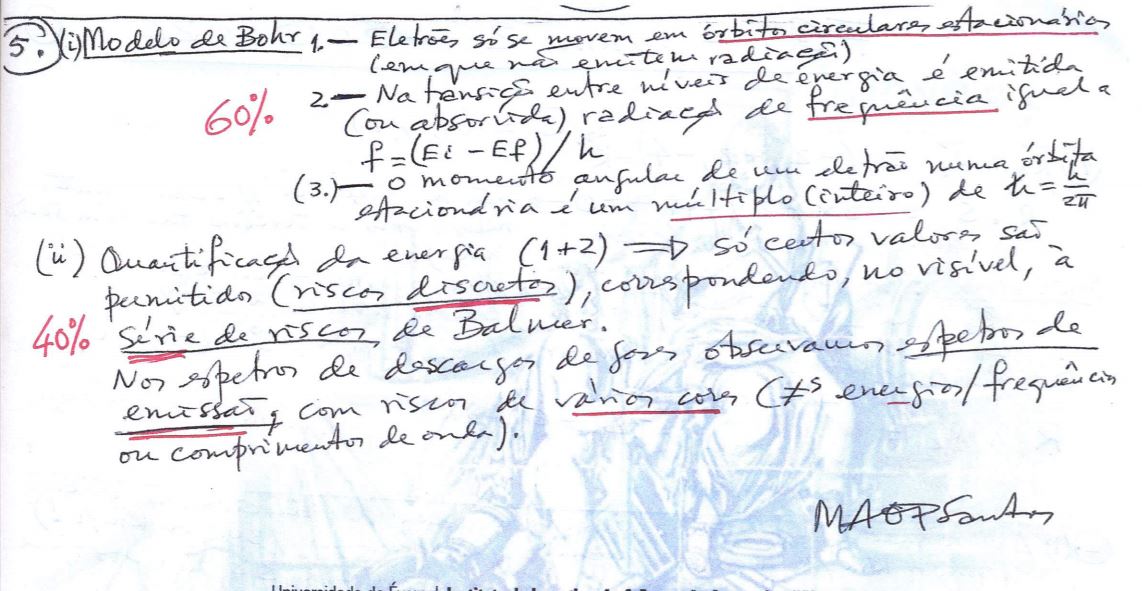 5. (i) Modelo de Bohr 1. — Eletrões só se movem em órbitas circulares estacionárias
(em que não emitem radiação)
2 — Na transição entre níveis de energia é emitida
60% (ou absorvida) radiação de frequência igual a
f = (Ei - Ef) / h
(3.) — O momento angular de um eletrão numa órbita
estacionária é um múltiplo (inteiro) de ħ = h/2π
(ii) Quantificação da energia (1+2) => só certos valores são
permitidos (riscos discretos), correspondendo, no visível, à
40% série de riscos de Balmer.
Nos espetros de descargas de gases observamos espetros de
emissão, com riscos de várias cores (≠s energias/frequências
ou comprimentos de onda).
MAOPSantos
Universidade de Évora